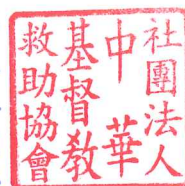 社團法人
中華
基督教
救助協會